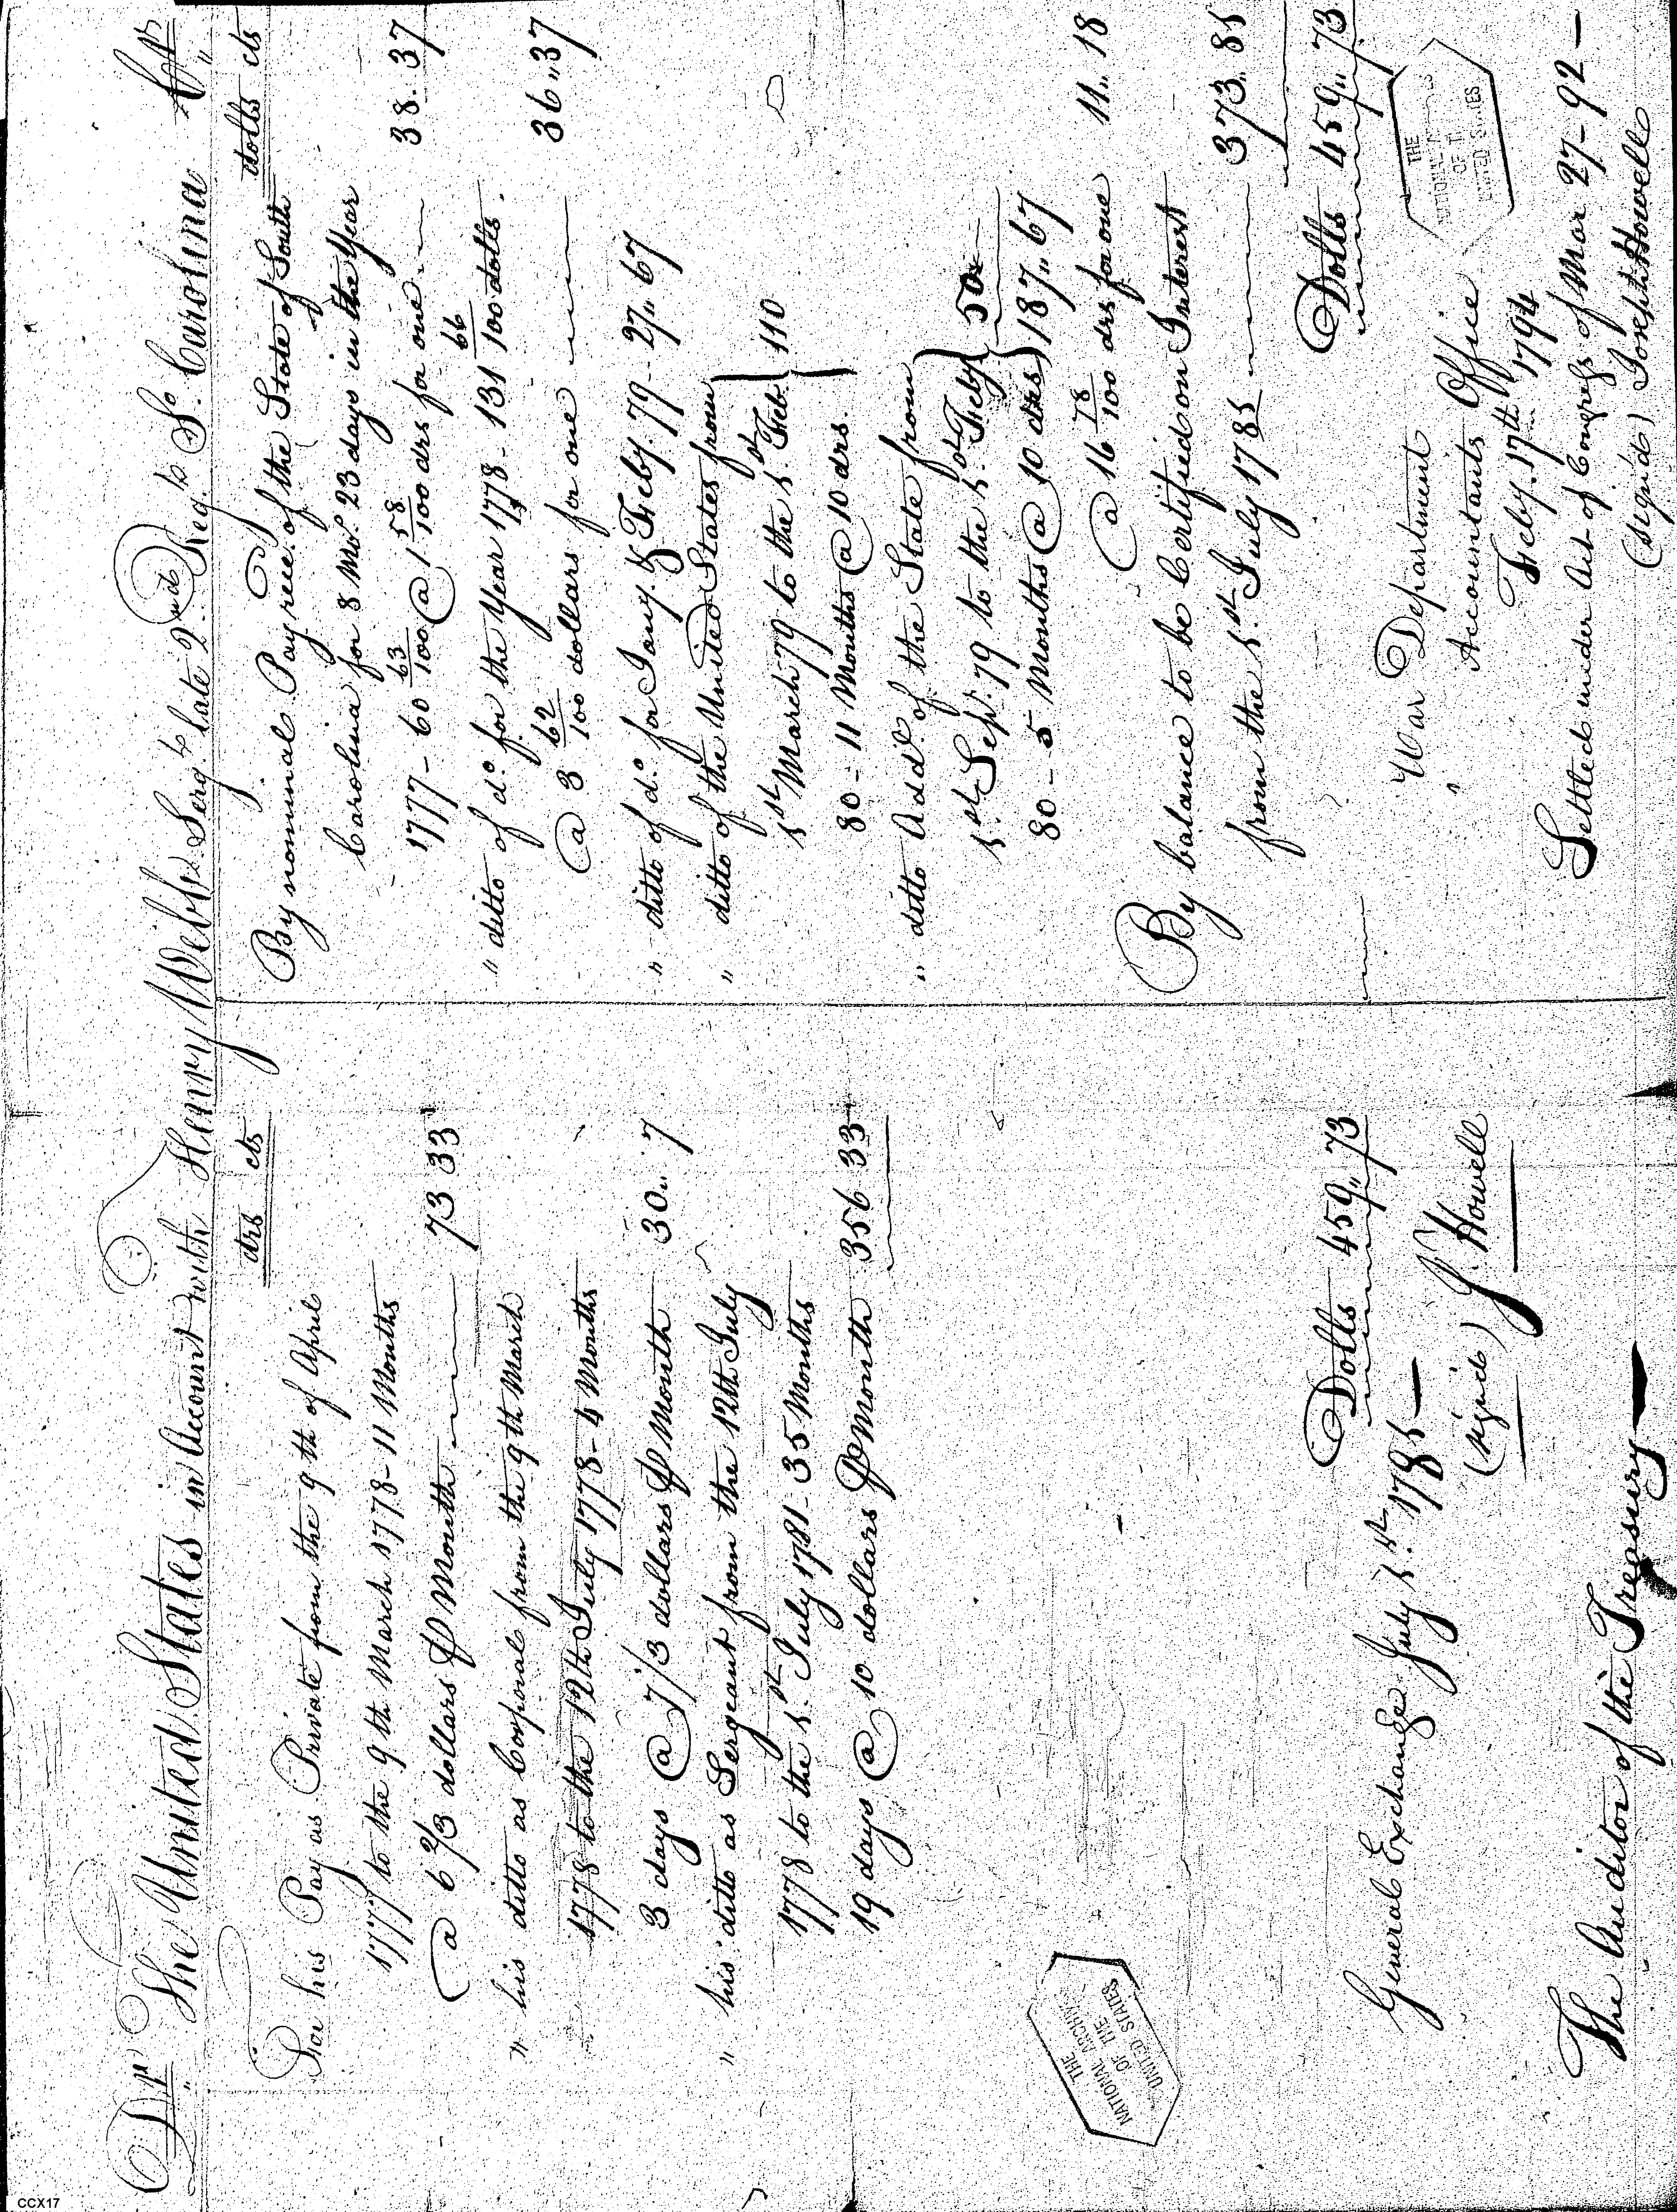 Dr The United States in Account with Henry Webb Sergt. late 2nd Regt. So. Carolina Cr
drs cts
For his Pay as Private from the 9th of April
1777 to the 9th March 1778 - 11 Months
@ 6 2/3 dollars ⅌ Month 73 33
" his ditto as Corporal from the 9th March
1778 to the 12th July 1778 - 4 Months
3 days @ 7 1/3 dollars ⅌ Month 30 " 7
" his ditto as Sergeant from the 12th July
1778 to the 1st July 1781 - 35 Months
19 days @ 10 dollars ⅌ Month 356 33
Dolls 459 " 73
General Exchange July 1st 1785 —
(signed) J Howell
The Auditor of the Treasury —
dolls cts
By nominal Pay rece. of the State of South
Carolina for 8 Mo. 23 days in the Year
1777 - 60 63/100 @ 1 58/100 drs for one 38 . 37
" ditto of do. for the Year 1778 - 131 66/100 dolls.
@ 3 62/100 dollars for one 36 " 37
" ditto of do. for Jany. & Feby. 79 - 27 " 67
" ditto of the United States from
1st March 79 to the 1st Feb. } 110
80 - 11 Months @ 10 drs.
" ditto Addl. of the State from
1st Sepr. 79 to the 1st Feby } 50
80 - 5 Months @ 10 drs ) 187 " 67
@ 16 78/100 drs for one 11 " 18
By balance to be Certified on Interest
from the 1st July 1785 373 " 81
Dolls 459 " 73
War Department
Accountants Office
Feby. 17th 1794
Settled under Act of Congress of Mar 27 - 92 —
(signed) Joseph Howell
THE
NATIONAL ARCHIVES
OF THE
UNITED STATES
THE
NATIONAL
OF T
UNITED STATES
CCX17